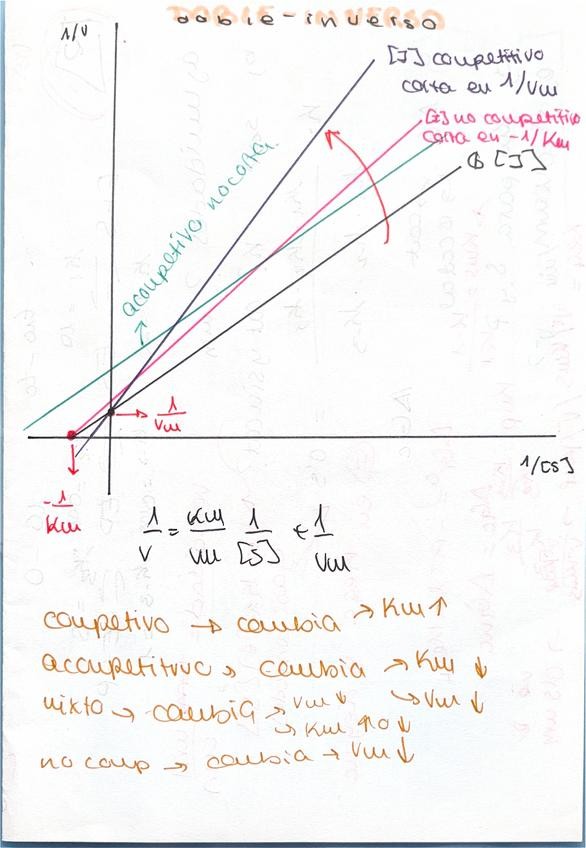 doble-inverso
1/V
[I] coupetitivo
corta en 1/Vm
[I] no coupetitivo
corta en -1/Km
∅ [I]
acoupetivo no corta.
1/Vm
1/[S]
-1/Km
1/V = Km/Vm 1/[S] + 1/Vm
coupetivo → cambia → Km ↑
acoupetituvo → cambia → Km ↓
→ Vm ↓
mixto → cambia → Vm ↓
→ Km ↑ o ↓
no coup → cambia → Vm ↓